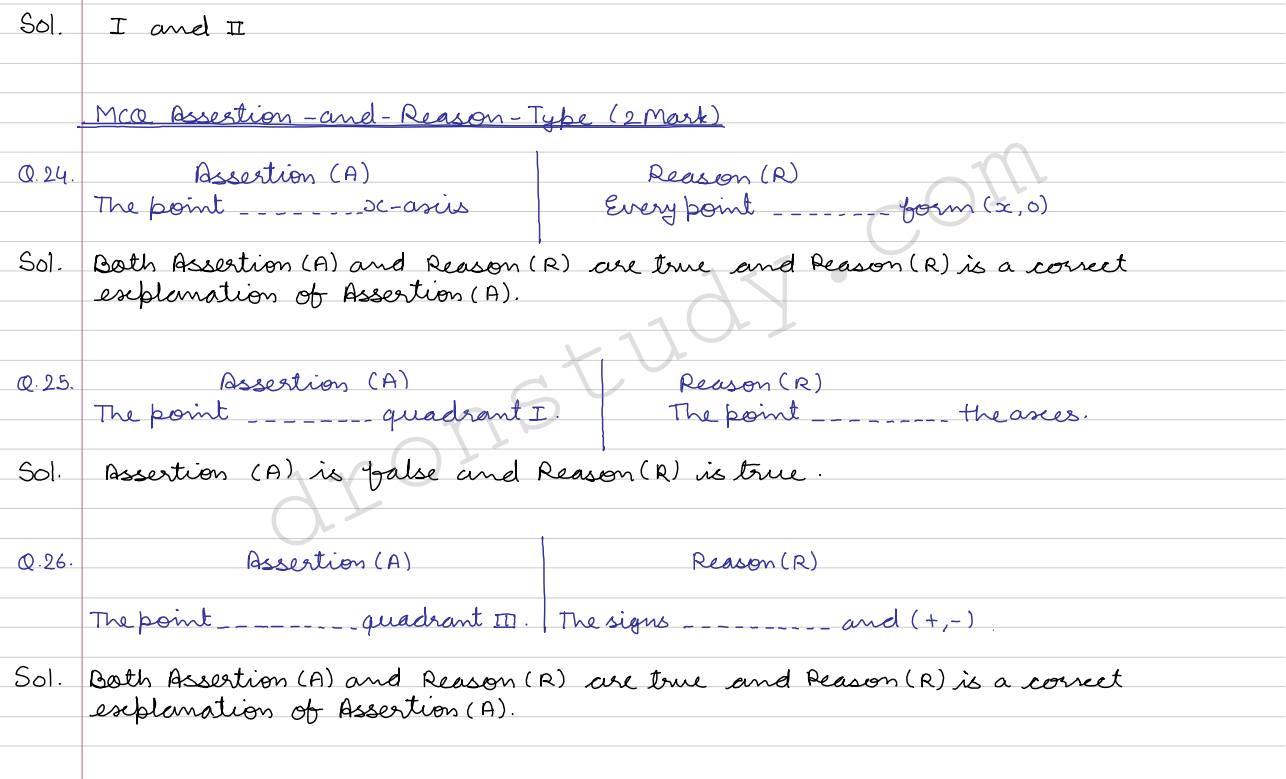 Sol. I and II
MCQ Assertion-and-Reason-Type (2 Mark)
Q.24. Assertion (A) Reason (R)
The point -------- x-axis Every point -------- form (x,0)
Sol. Both Assertion (A) and Reason (R) are true and Reason (R) is a correct
explanation of Assertion (A).
Q.25. Assertion (A) Reason (R)
The point -------- quadrant I. The point ---------- the axes.
Sol. Assertion (A) is false and Reason (R) is true.
Q.26. Assertion (A) Reason (R)
The point --------- quadrant III. The signs ---------- and (+,-).
Sol. Both Assertion (A) and Reason (R) are true and Reason (R) is a correct
explanation of Assertion (A).
dronstudy.com